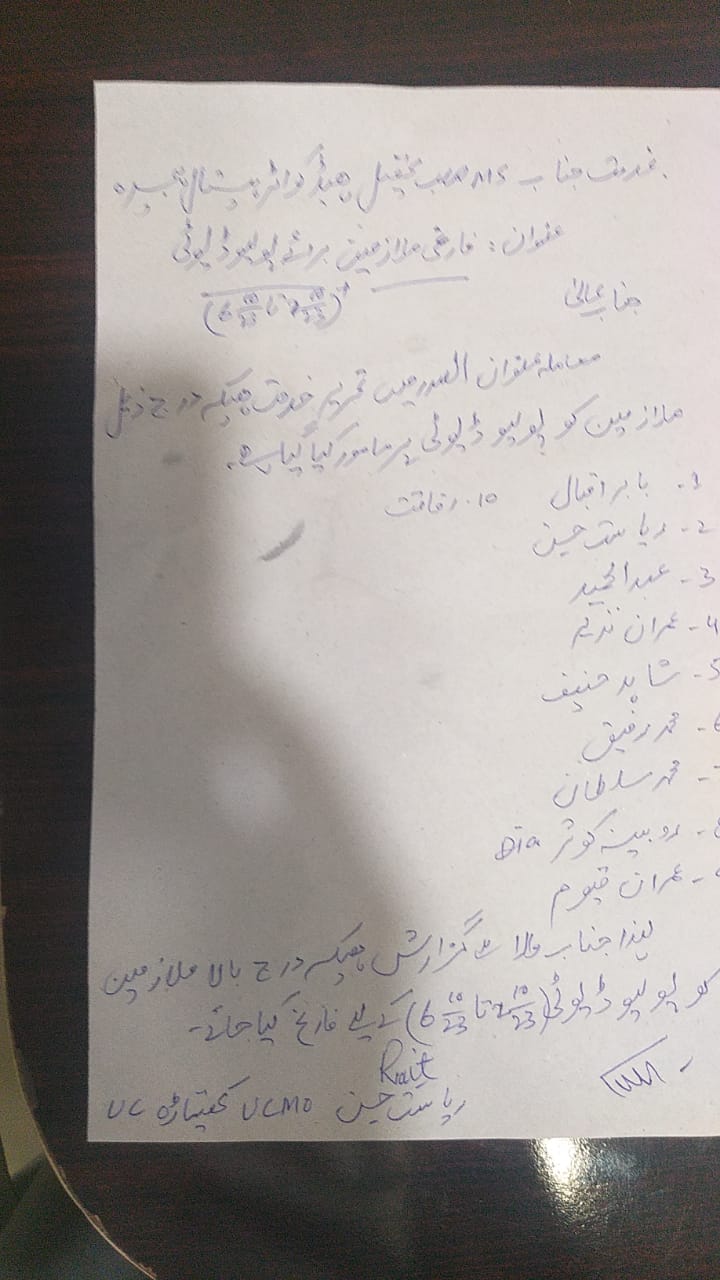 بخدمت جناب MS صاحب تحصیل ہیڈ کوارٹر ہسپتال ہجیرہ
عنوان: فارغی ملازمین برائے پولیو ڈیوٹی
(2 10/23 تا 6 10/23)
جناب عالی
معاملہ عنوان الصدر میں تحریر خدمت ہیکہ درج ذیل
ملازمین کو پولیو ڈیوٹی پر مامور کیا گیا ہے۔
1- بابر اقبال 10. رفاقت
2- ریاست حسین
3- عبدالحمید
4- عمران ندیم
5- شاہد حنیف
6- محمد رفیق
- محمد سلطان
8- روبینہ کوثر
- عمران قیوم
لہذا جناب والا سے گزارش ہیکہ درج بالا ملازمین
کو پولیو ڈیوٹی (2 10/23 تا 6 10/23) کے لیے فارغ کیا جائے۔
ریاست حسین UCMO UC